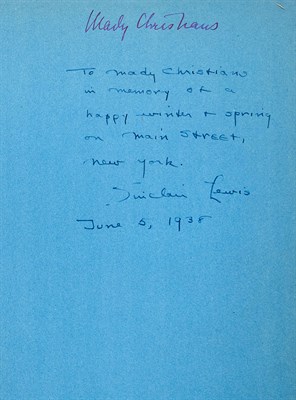 Mady Christians
To Mady Christians
in memory of a
happy winter & spring
on Main Street,
New York.
Sinclair Lewis
June 5, 1938